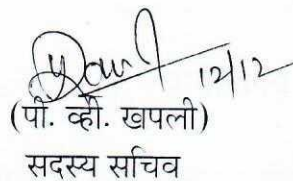 12/12
(पी. व्ही. खपली)
सदस्य सचिव